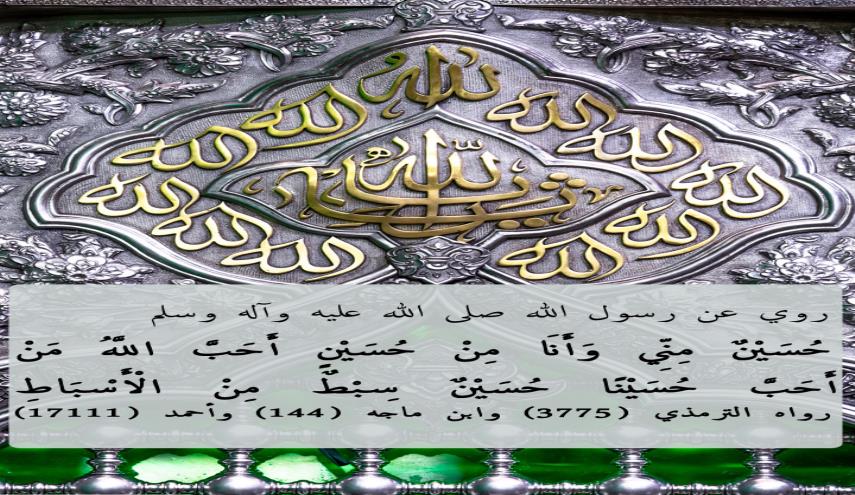 الله
الله الله
الله الله
الله الله
الله الله
الله الله
روي عن رسول الله صلى الله عليه وآله وسلم
حُسَيْنٌ مِنِّي وَأَنَا مِنْ حُسَيْنٍ أَحَبَّ اللَّهُ مَنْ
أَحَبَّ حُسَيْنًا حُسَيْنٌ سِبْطٌ مِنْ الْأَسْبَاطِ
رواه الترمذي (3775) وابن ماجه (144) وأحمد (17111)